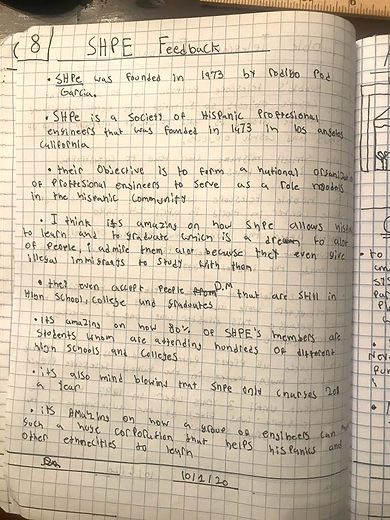 (8) SHPE Feedback
• SHPe was founded in 1973 by rodlbo Rod
Garcia.
• SHPe is a Society of Hispanic Proffesional
engineers that was founded in 1973 in los angeles
California
• their Objective is to form a national
of Proffesional engineers to serve as a role models
in the hispanic community
• I think its amazing on how Shpe allows
to learn and to graduate which is a dream to alot
of people, i admire them alot because they even give
illegal immigrants to study with them
• they even accept people D.M that are still in
High School, college and graduates
• its amazing on how 80% of SHPE's members are
Students whom are attending hundreds of different
high schools and Colleges
• its also mind blowing that Shpe only charges
a year
• its AMaZing on how a group of engineers can
Such a huge corporation that helps hispanics and
other ethnecities to learn
10/1/20